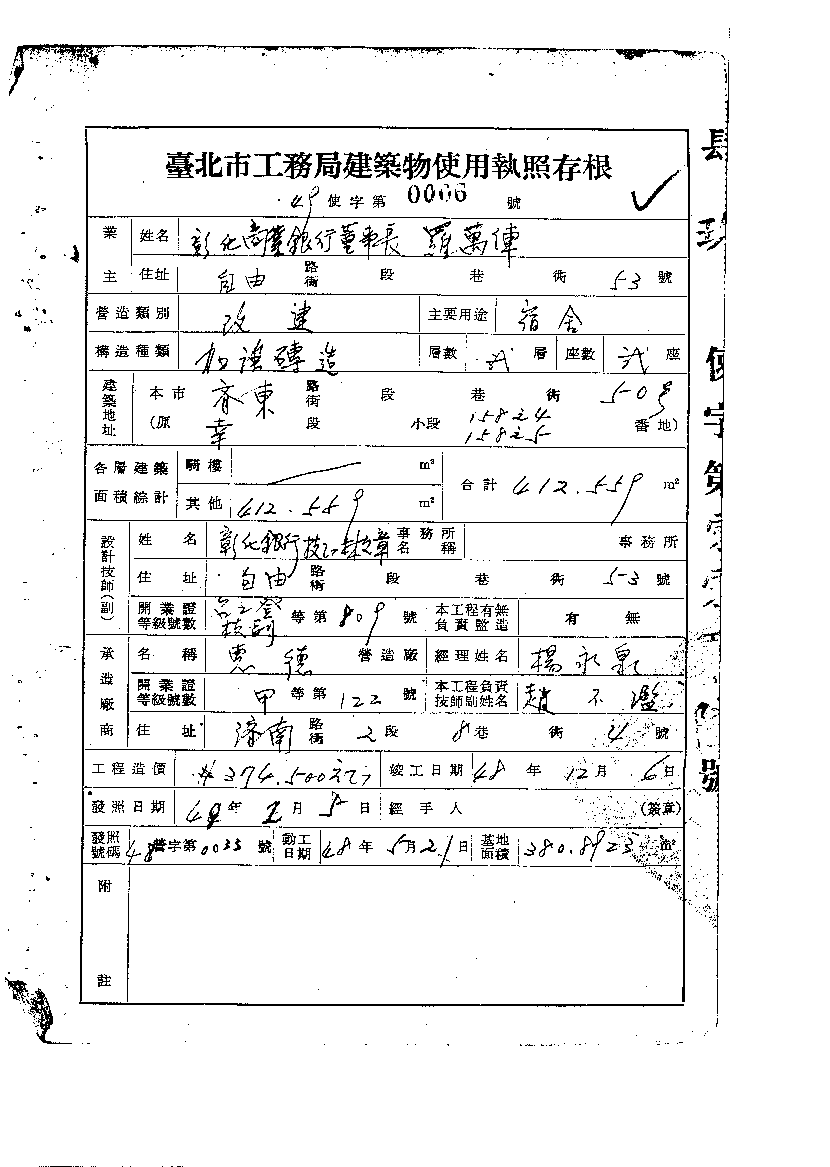 臺北市工務局建築物使用執照存根
49 使字第 0066 號
業主 姓名 彰化商業銀行董事長 羅萬俥
住址 自由 路街 段 巷 衖 53 號
營造類別 改建 主要用途 宿舍
構造種類 加強磚造 層數 弍 層 座數 弍 座
建築地址 本市 齊東 路街 段 巷 衖 50号
(原 幸 段 小段 158之4 158之5 番地)
各層建築面積綜計 騎樓 m² 合計 412.559 m²
其他 412.559 m²
設計技師(副) 姓名 彰化銀行 事務所名稱 事務所
住址 自由 路街 段 巷 衖 53 號
開業證等級號數 等第 809 號 本工程有無負責監造 有 無
承造廠商 名稱 惠德 營造廠 經理姓名 楊永泉
開業證等級號數 甲 等第 122 號 本工程負責技師副姓名 趙不濫
住址 濟南 路街 2 段 8 巷 衖 4 號
工程造價 374.500元 竣工日期 48 年 12 月 6 日
發照日期 49 年 2 月 5 日 經手人 (簽章)
發照號碼 48 營字第 0033 號 動工日期 48 年 5 月 21 日 基地面積 380.8923 m²
附註
使字第
號